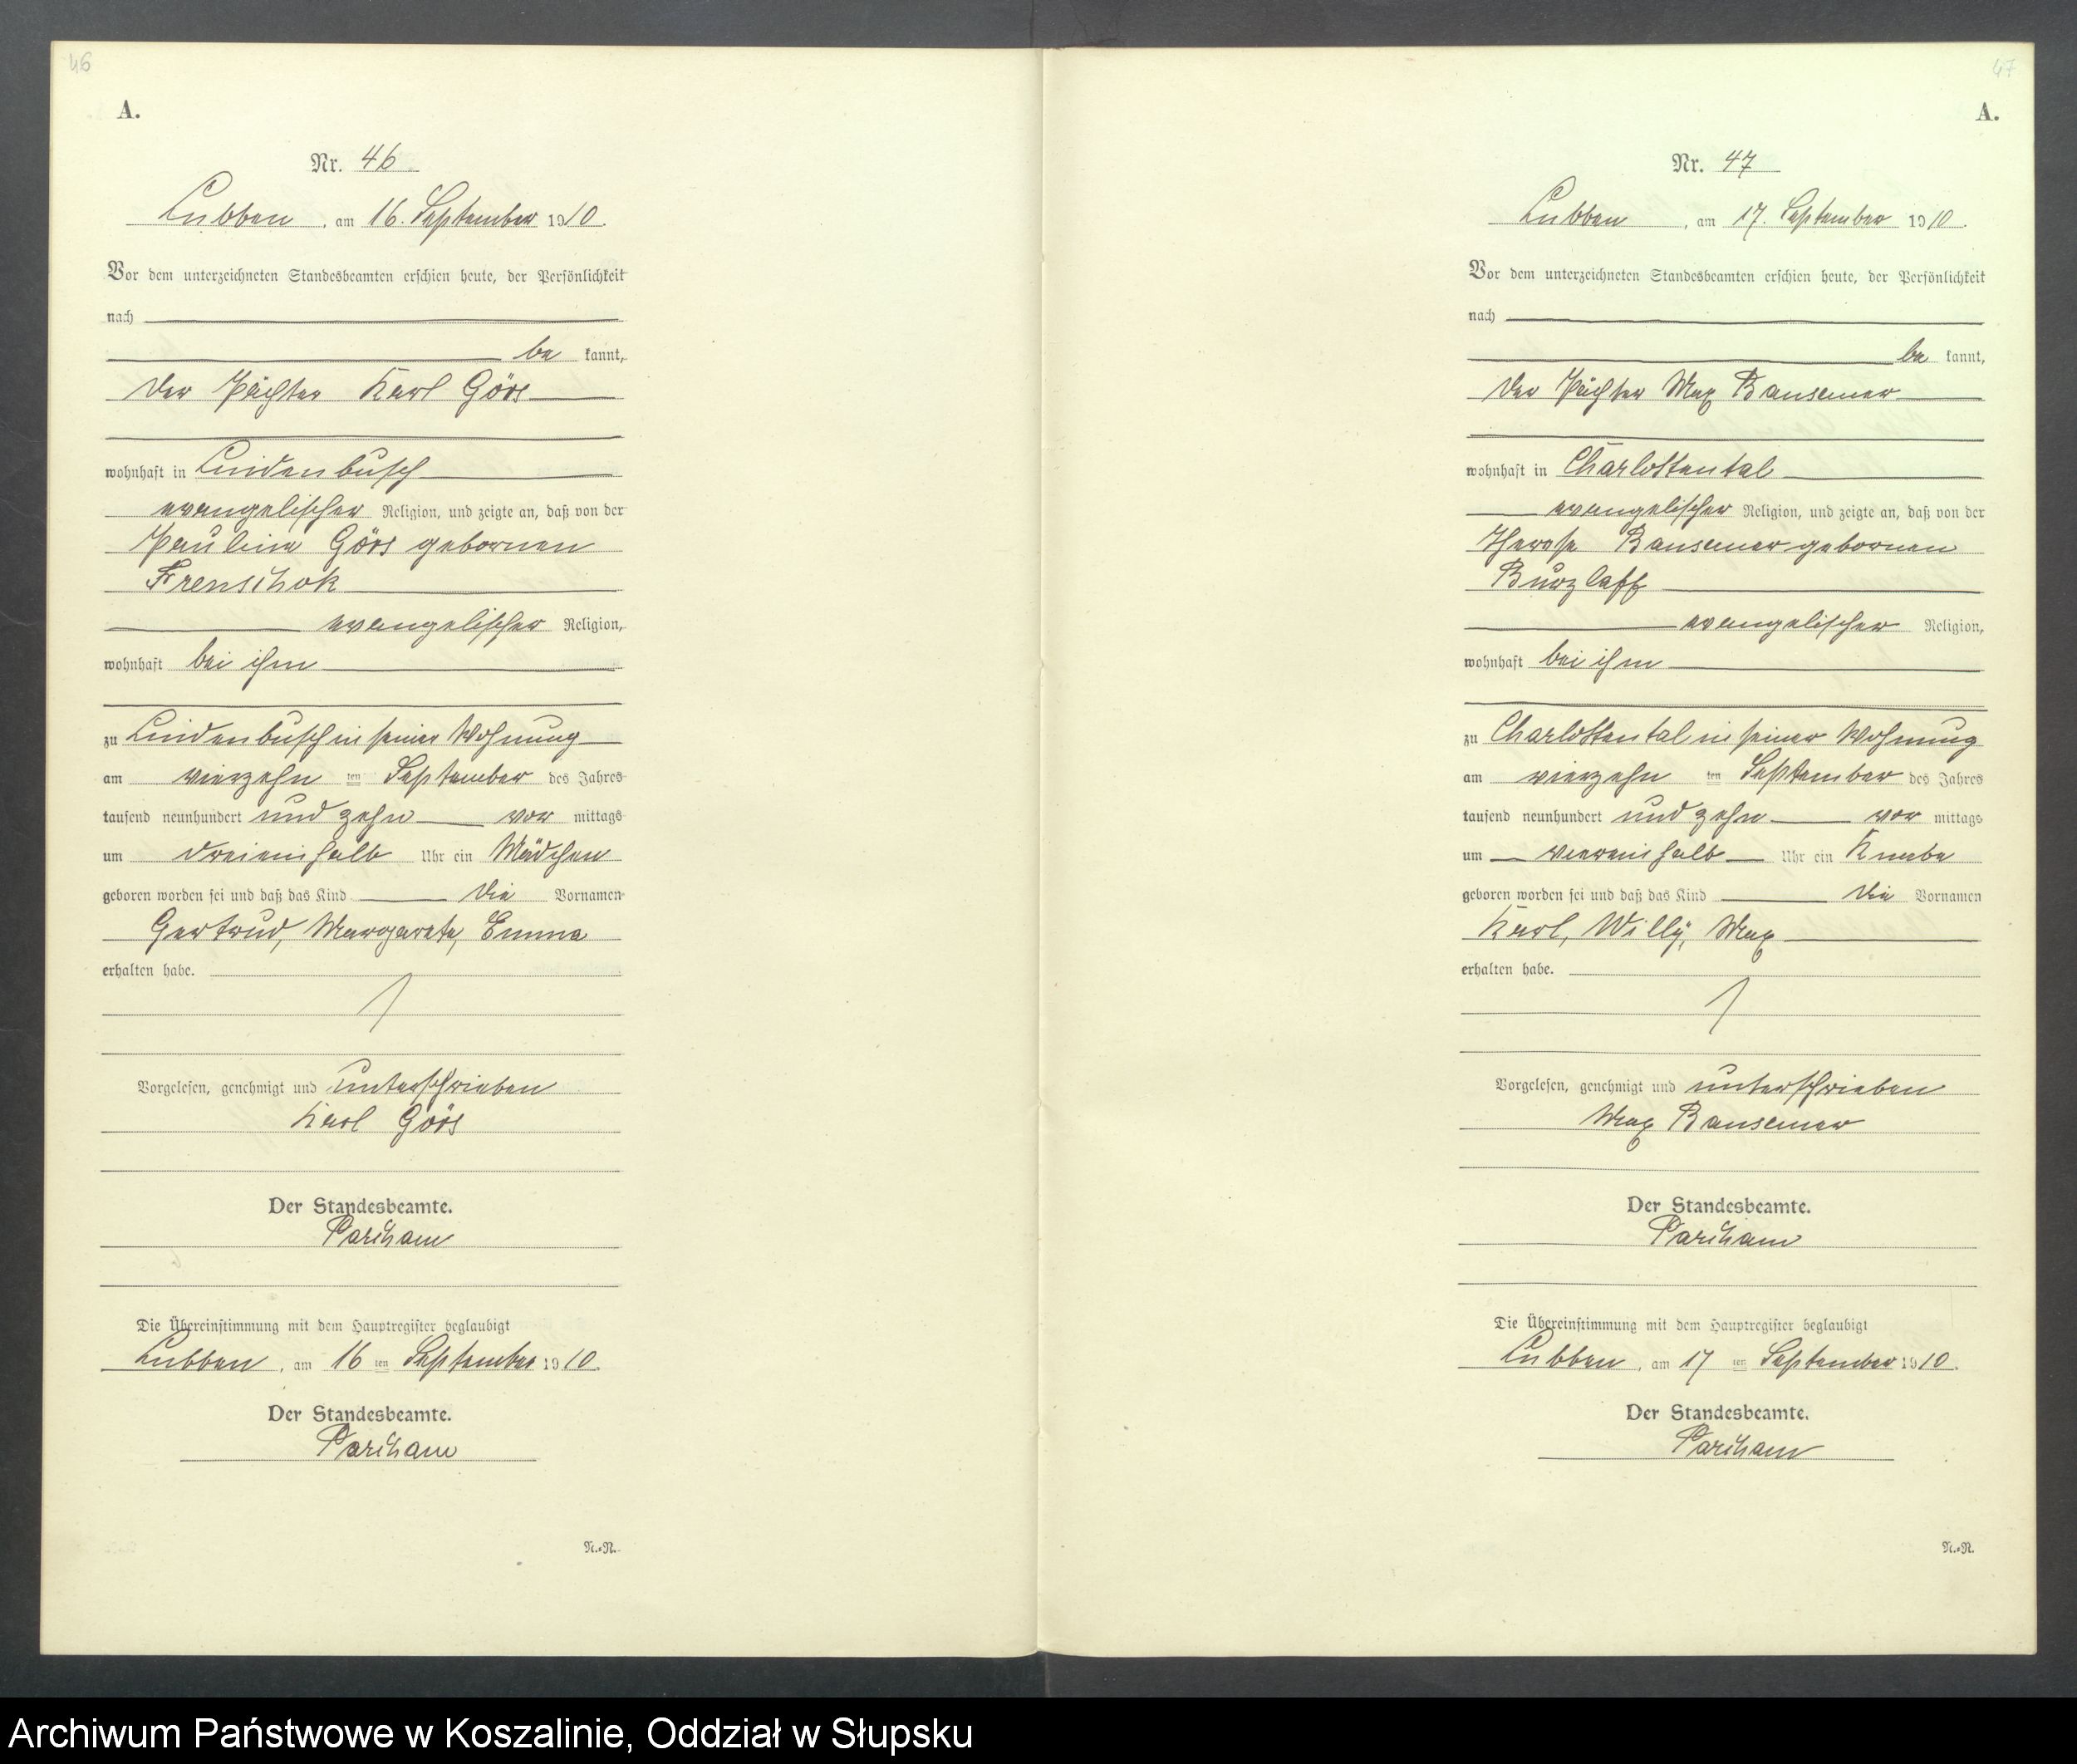 46
A.
Nr. 46
Lubben, am 16. September 1910.
Vor dem unterzeichneten Standesbeamten erschien heute, der Persönlichkeit
nach
be kannt,
der Pächter Karl Görs
wohnhaft in Lindenbusch
evangelischer Religion, und zeigte an, daß von der
Pauline Görs gebornen
Frenschok
evangelischer Religion,
wohnhaft bei ihm
zu Lindenbusch in seiner Wohnung
am vierzehn ten September des Jahres
tausend neunhundert und zehn vor mittags
um dreieinhalb Uhr ein Mädchen
geboren worden sei und daß das Kind die Vornamen
Gertrud, Margarete, Emma
erhalten habe.
Vorgelesen, genehmigt und unterschrieben
Karl Görs
Der Standesbeamte.
Die Übereinstimmung mit dem Hauptregister beglaubigt
Lubben, am 16 ten September 1910.
Der Standesbeamte.
N.=N.
47
A.
Nr. 47
Lubben, am 17. September 1910.
Vor dem unterzeichneten Standesbeamten erschien heute, der Persönlichkeit
nach
be kannt,
der Pächter Max Bansemer
wohnhaft in Charlottental
evangelischer Religion, und zeigte an, daß von der
Therese Bansemer gebornen
Burzlaff
evangelischer Religion,
wohnhaft bei ihm
zu Charlottental in seiner Wohnung
am vierzehn ten September des Jahres
tausend neunhundert und zehn vor mittags
um viereinhalb Uhr ein Knabe
geboren worden sei und daß das Kind die Vornamen
Karl, Willy, Max
erhalten habe.
Vorgelesen, genehmigt und unterschrieben
Max Bansemer
Der Standesbeamte.
Die Übereinstimmung mit dem Hauptregister beglaubigt
Lubben, am 17 ten September 1910.
Der Standesbeamte.
N.=N.
Archiwum Państwowe w Koszalinie, Oddział w Słupsku